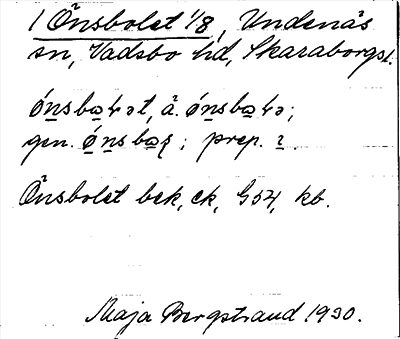 1 Önsbolet 1/8, Undenäs
sn, Vadsbo hd, Skaraborgs l.
ónsbo̲ɬət, ä. ónsbo̲ɬə;
gen. ónsbo̲ʂ; prep. i.
Önsbolet bek, ek, G54, kb.
Maja Bergstrand 1930.